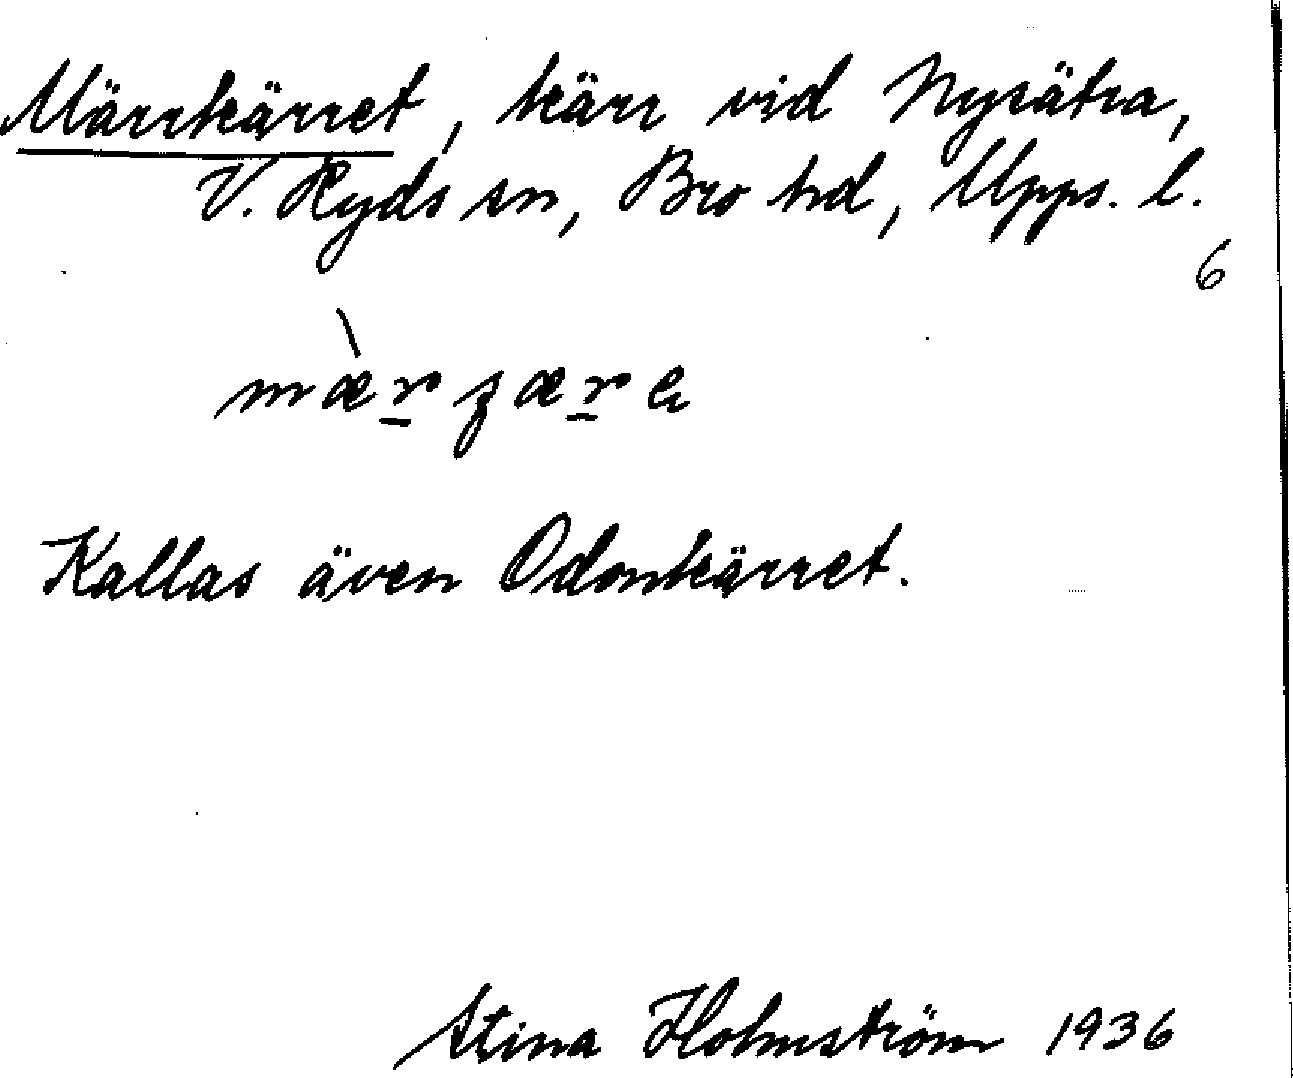 Märrkärret, kärr vid Nysätra,
V. Ryds sn, Bro hd, Upps. l.
6
mær̠ʒær̠e
Kallas även Odonkärret.
Stina Holmström 1936